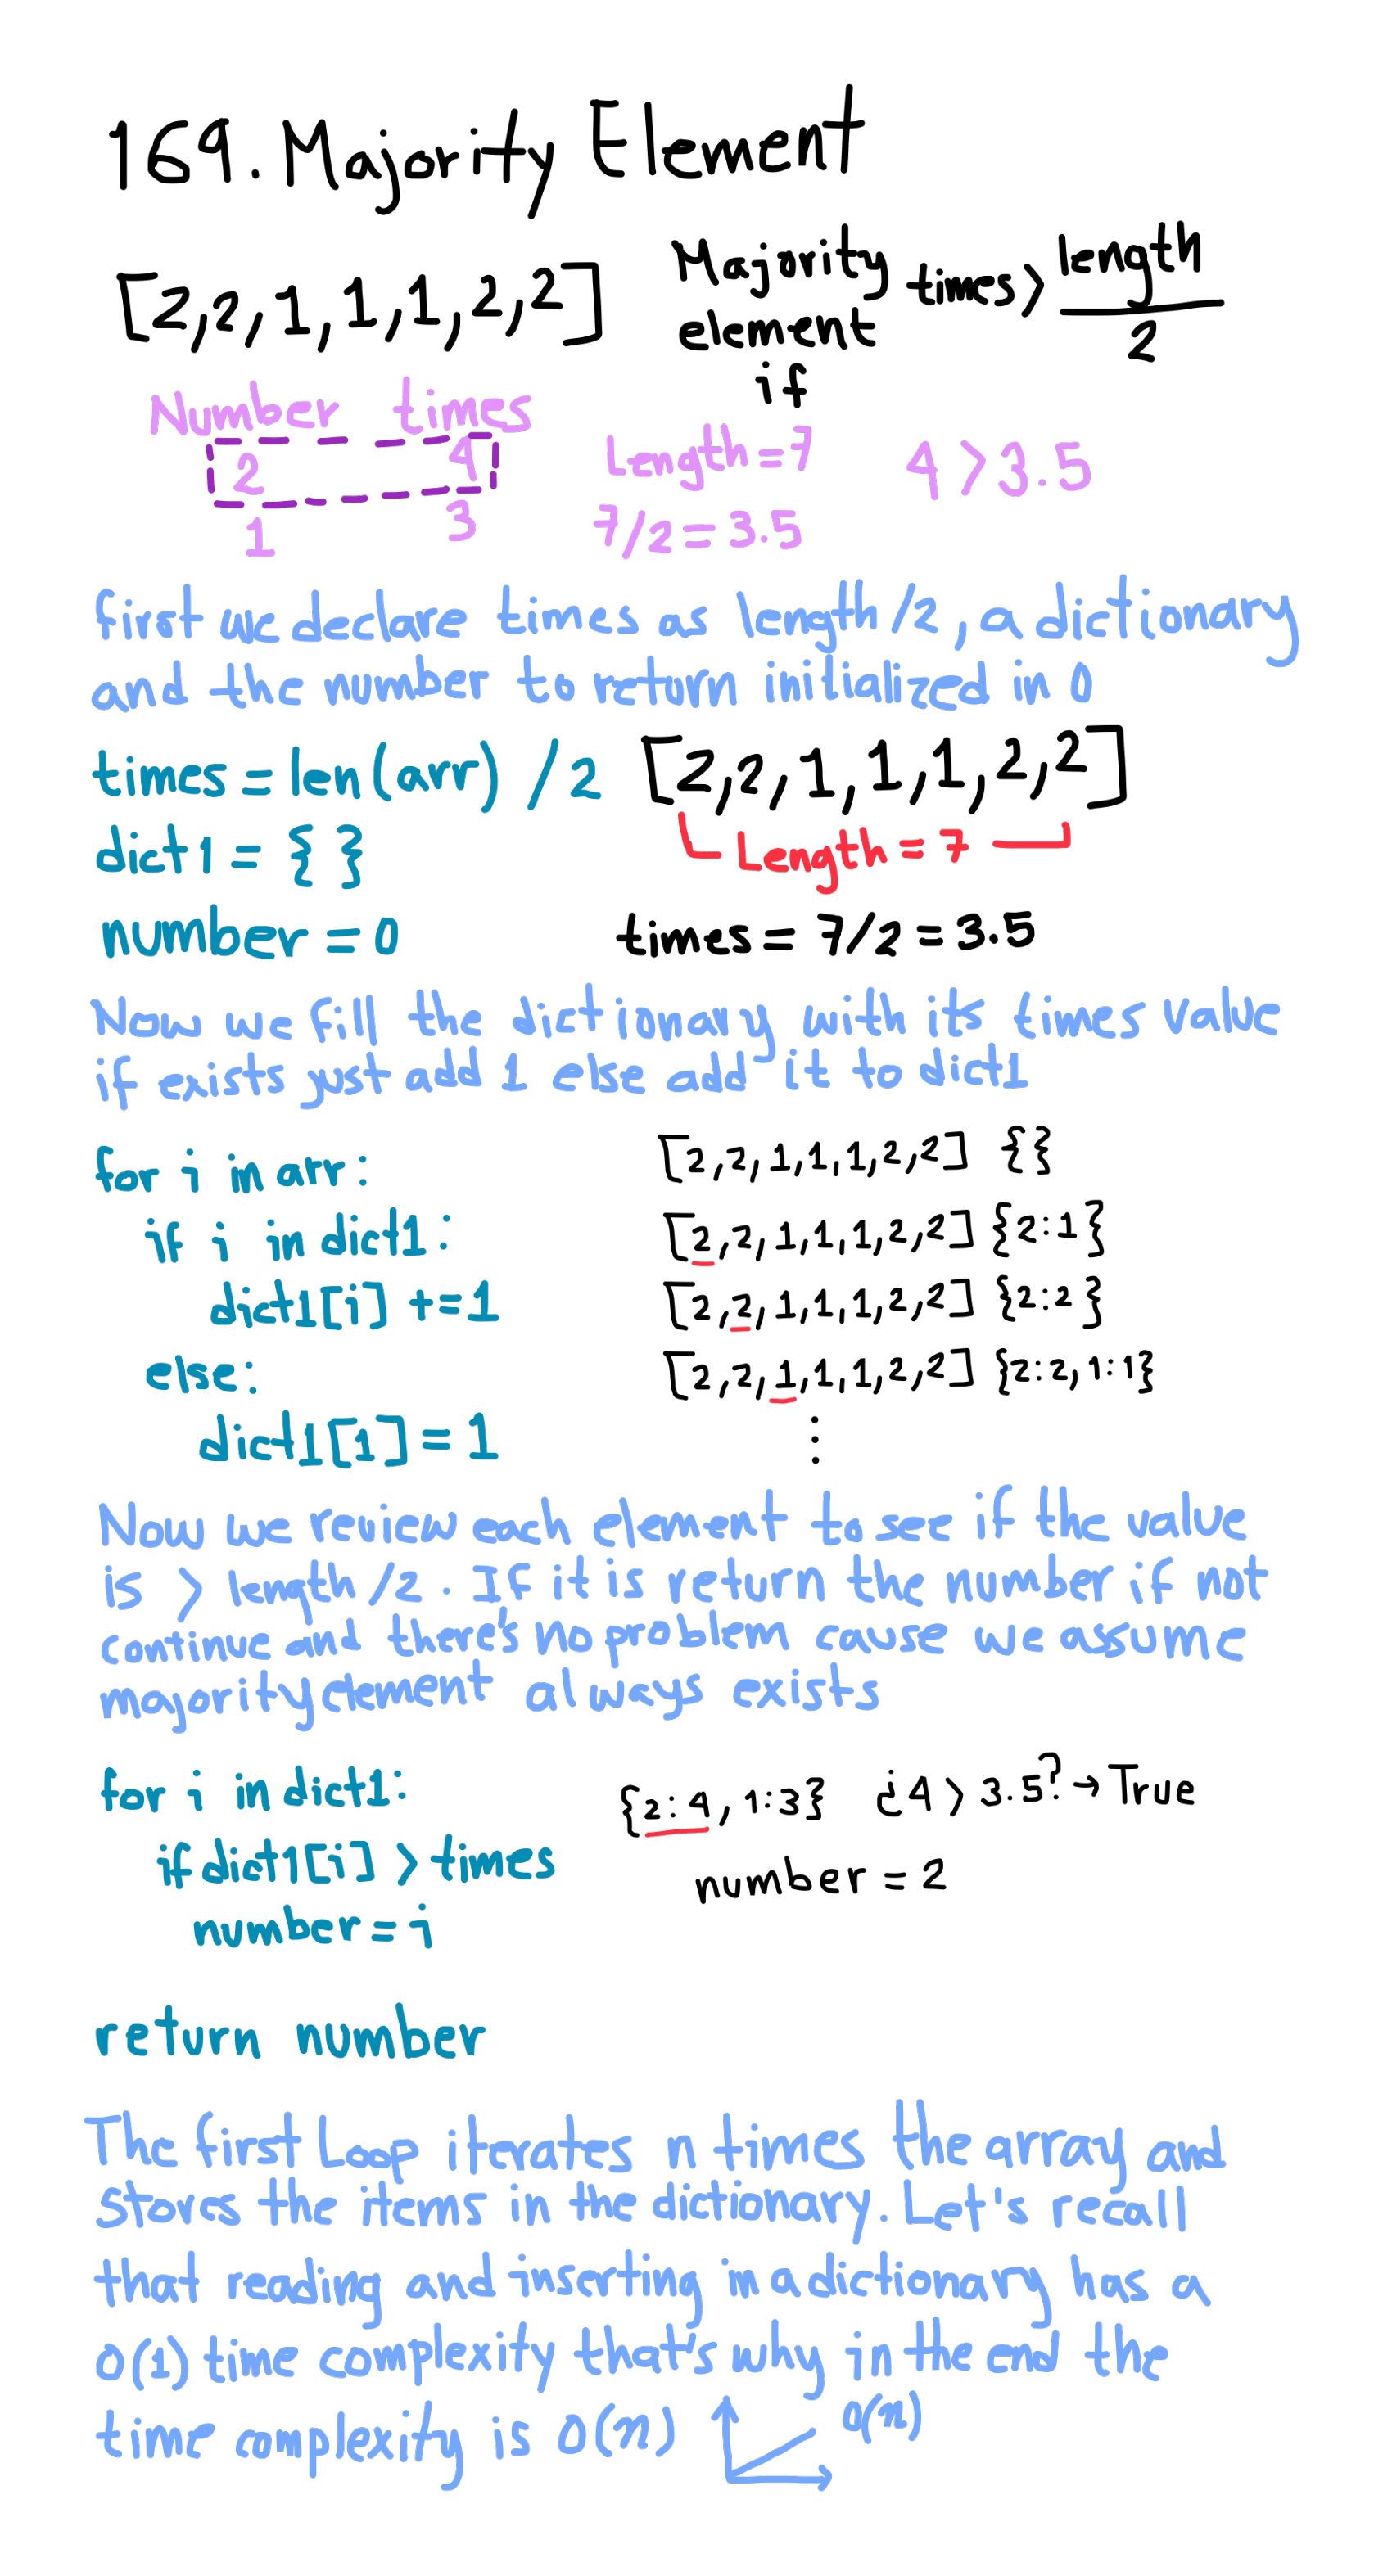 169. Majority Element
[2,2,1,1,1,2,2] Majority element if times > length/2
Number times
2 4
1 3
Length=7
7/2=3.5
4>3.5
first we declare times as length/2, a dictionary
and the number to return initialized in 0
times = len(arr) /2
dict1 = { }
number = 0
[2,2,1,1,1,2,2]
Length = 7
times = 7/2 = 3.5
Now we fill the dictionary with its times value
if exists just add 1 else add it to dict1
for i in arr:
if i in dict1:
dict1[i] +=1
else:
dict1[1] = 1
[2,2,1,1,1,2,2] {}
[2,2,1,1,1,2,2] {2:1}
[2,2,1,1,1,2,2] {2:2}
[2,2,1,1,1,2,2] {2:2,1:1}
⋮
Now we review each element to see if the value
is > length/2. If it is return the number if not
continue and there's no problem cause we assume
majority element always exists
for i in dict1:
if dict1[i] > times
number = i
{2:4, 1:3} ¿4 > 3.5? → True
number = 2
return number
The first Loop iterates n times the array and
stores the items in the dictionary. Let's recall
that reading and inserting in a dictionary has a
O(1) time complexity that's why in the end the
time complexity is O(n) O(n)